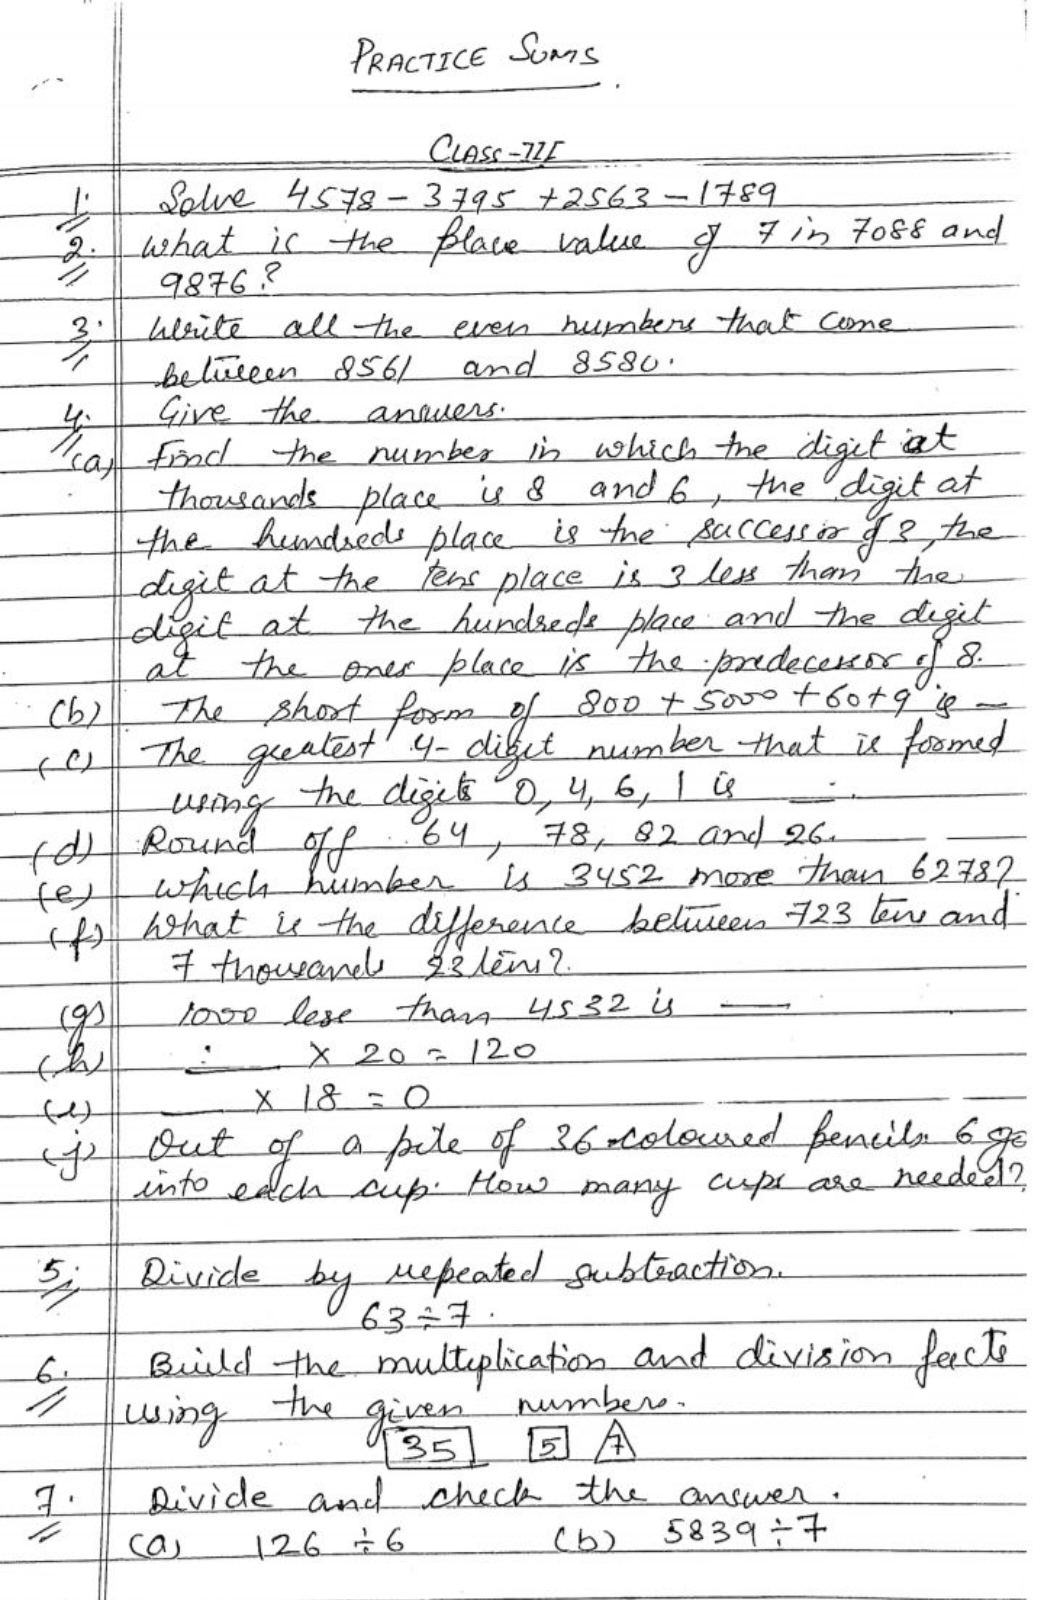 PRACTICE SUMS
CLASS-III
1. Solve 4578 - 3795 + 2563 - 1789
2. What is the place value of 7 in 7088 and
9876?
3. Write all the even numbers that come
between 8561 and 8580.
4. Give the answers.
(a) Find the number in which the digit at
thousands place is 8 and 6, the digit at
the hundreds place is the successor of 3, the
digit at the tens place is 3 less than the
digit at the hundreds place and the digit
at the ones place is the predecessor of 8.
(b) The short form of 800 + 5000 + 60 + 9 is —
(c) The greatest 4-digit number that is formed
using the digits 0, 4, 6, 1 is __.
(d) Round off 64, 78, 82 and 26.
(e) Which number is 3452 more than 6278?
(f) What is the difference between 723 tens and
7 thousands 23 tens?
(g) 1000 less than 4532 is —
(h) __ × 20 = 120
(i) __ × 18 = 0
(j) Out of a pile of 36 coloured pencils 6 go
into each cup. How many cups are needed?
5. Divide by repeated subtraction.
63 ÷ 7.
6. Build the multiplication and division facts
using the given numbers.
35 5 7
7. Divide and check the answer.
(a) 126 ÷ 6 (b) 5839 ÷ 7